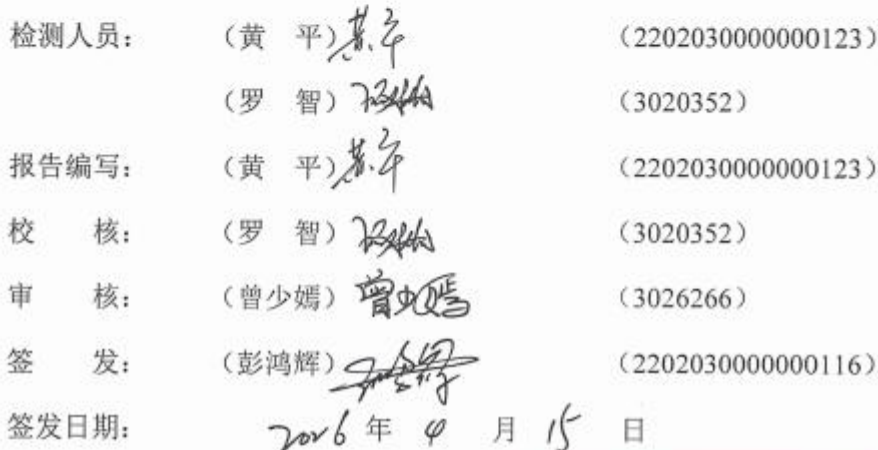 检测人员： （黄 平）黄平 （2202030000000123）
（罗 智） （3020352）
报告编写： （黄 平）黄平 （2202030000000123）
校 核： （罗 智） （3020352）
审 核： （曾少嫣）曾少嫣 （3026266）
签 发： （彭鸿辉） （2202030000000116）
签发日期： 2026 年 4 月 15 日